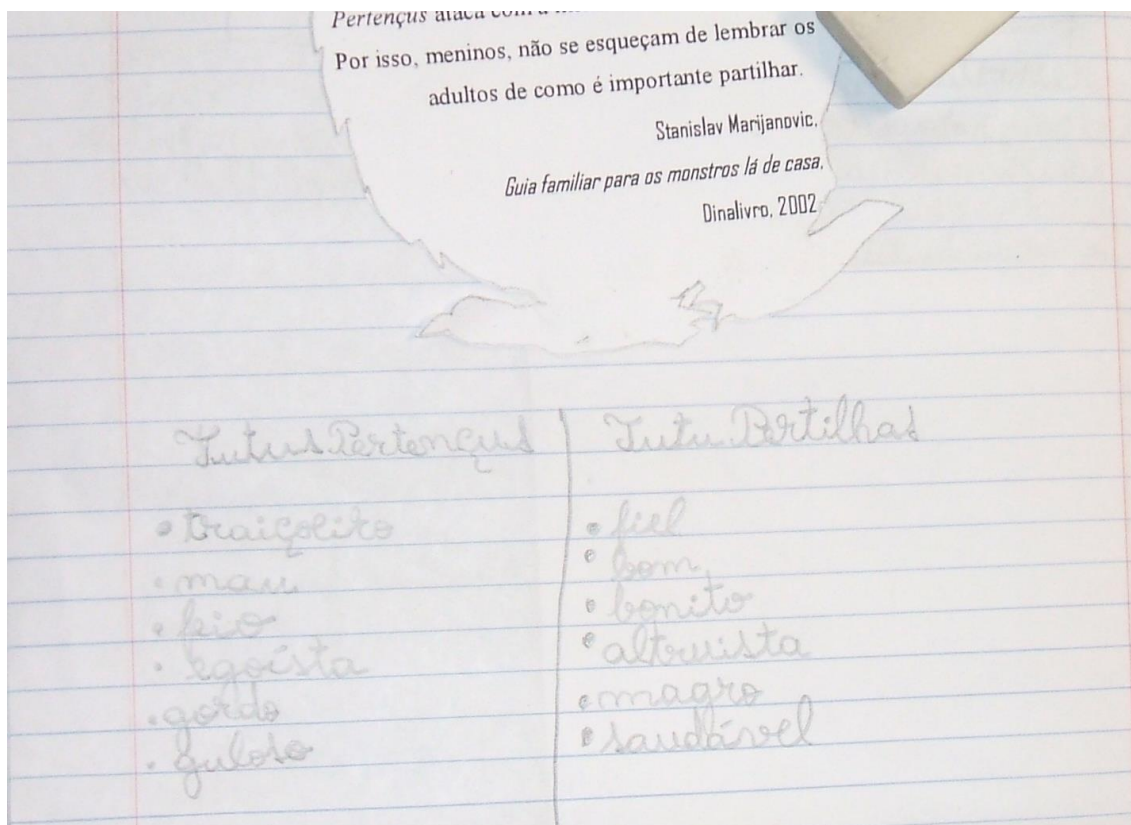 Pertençus ataca com a
Por isso, meninos, não se esqueçam de lembrar os
adultos de como é importante partilhar.
Stanislav Marijanovic,
Guia familiar para os monstros lá de casa,
Dinalivro, 2002
Tutus Pertençus
Tutu Partilhas
• traiçoeiro
• mau
• feio
• egoísta
• gordo
• guloso
• fiel
• bom
• bonito
• altruista
• magro
• saudável